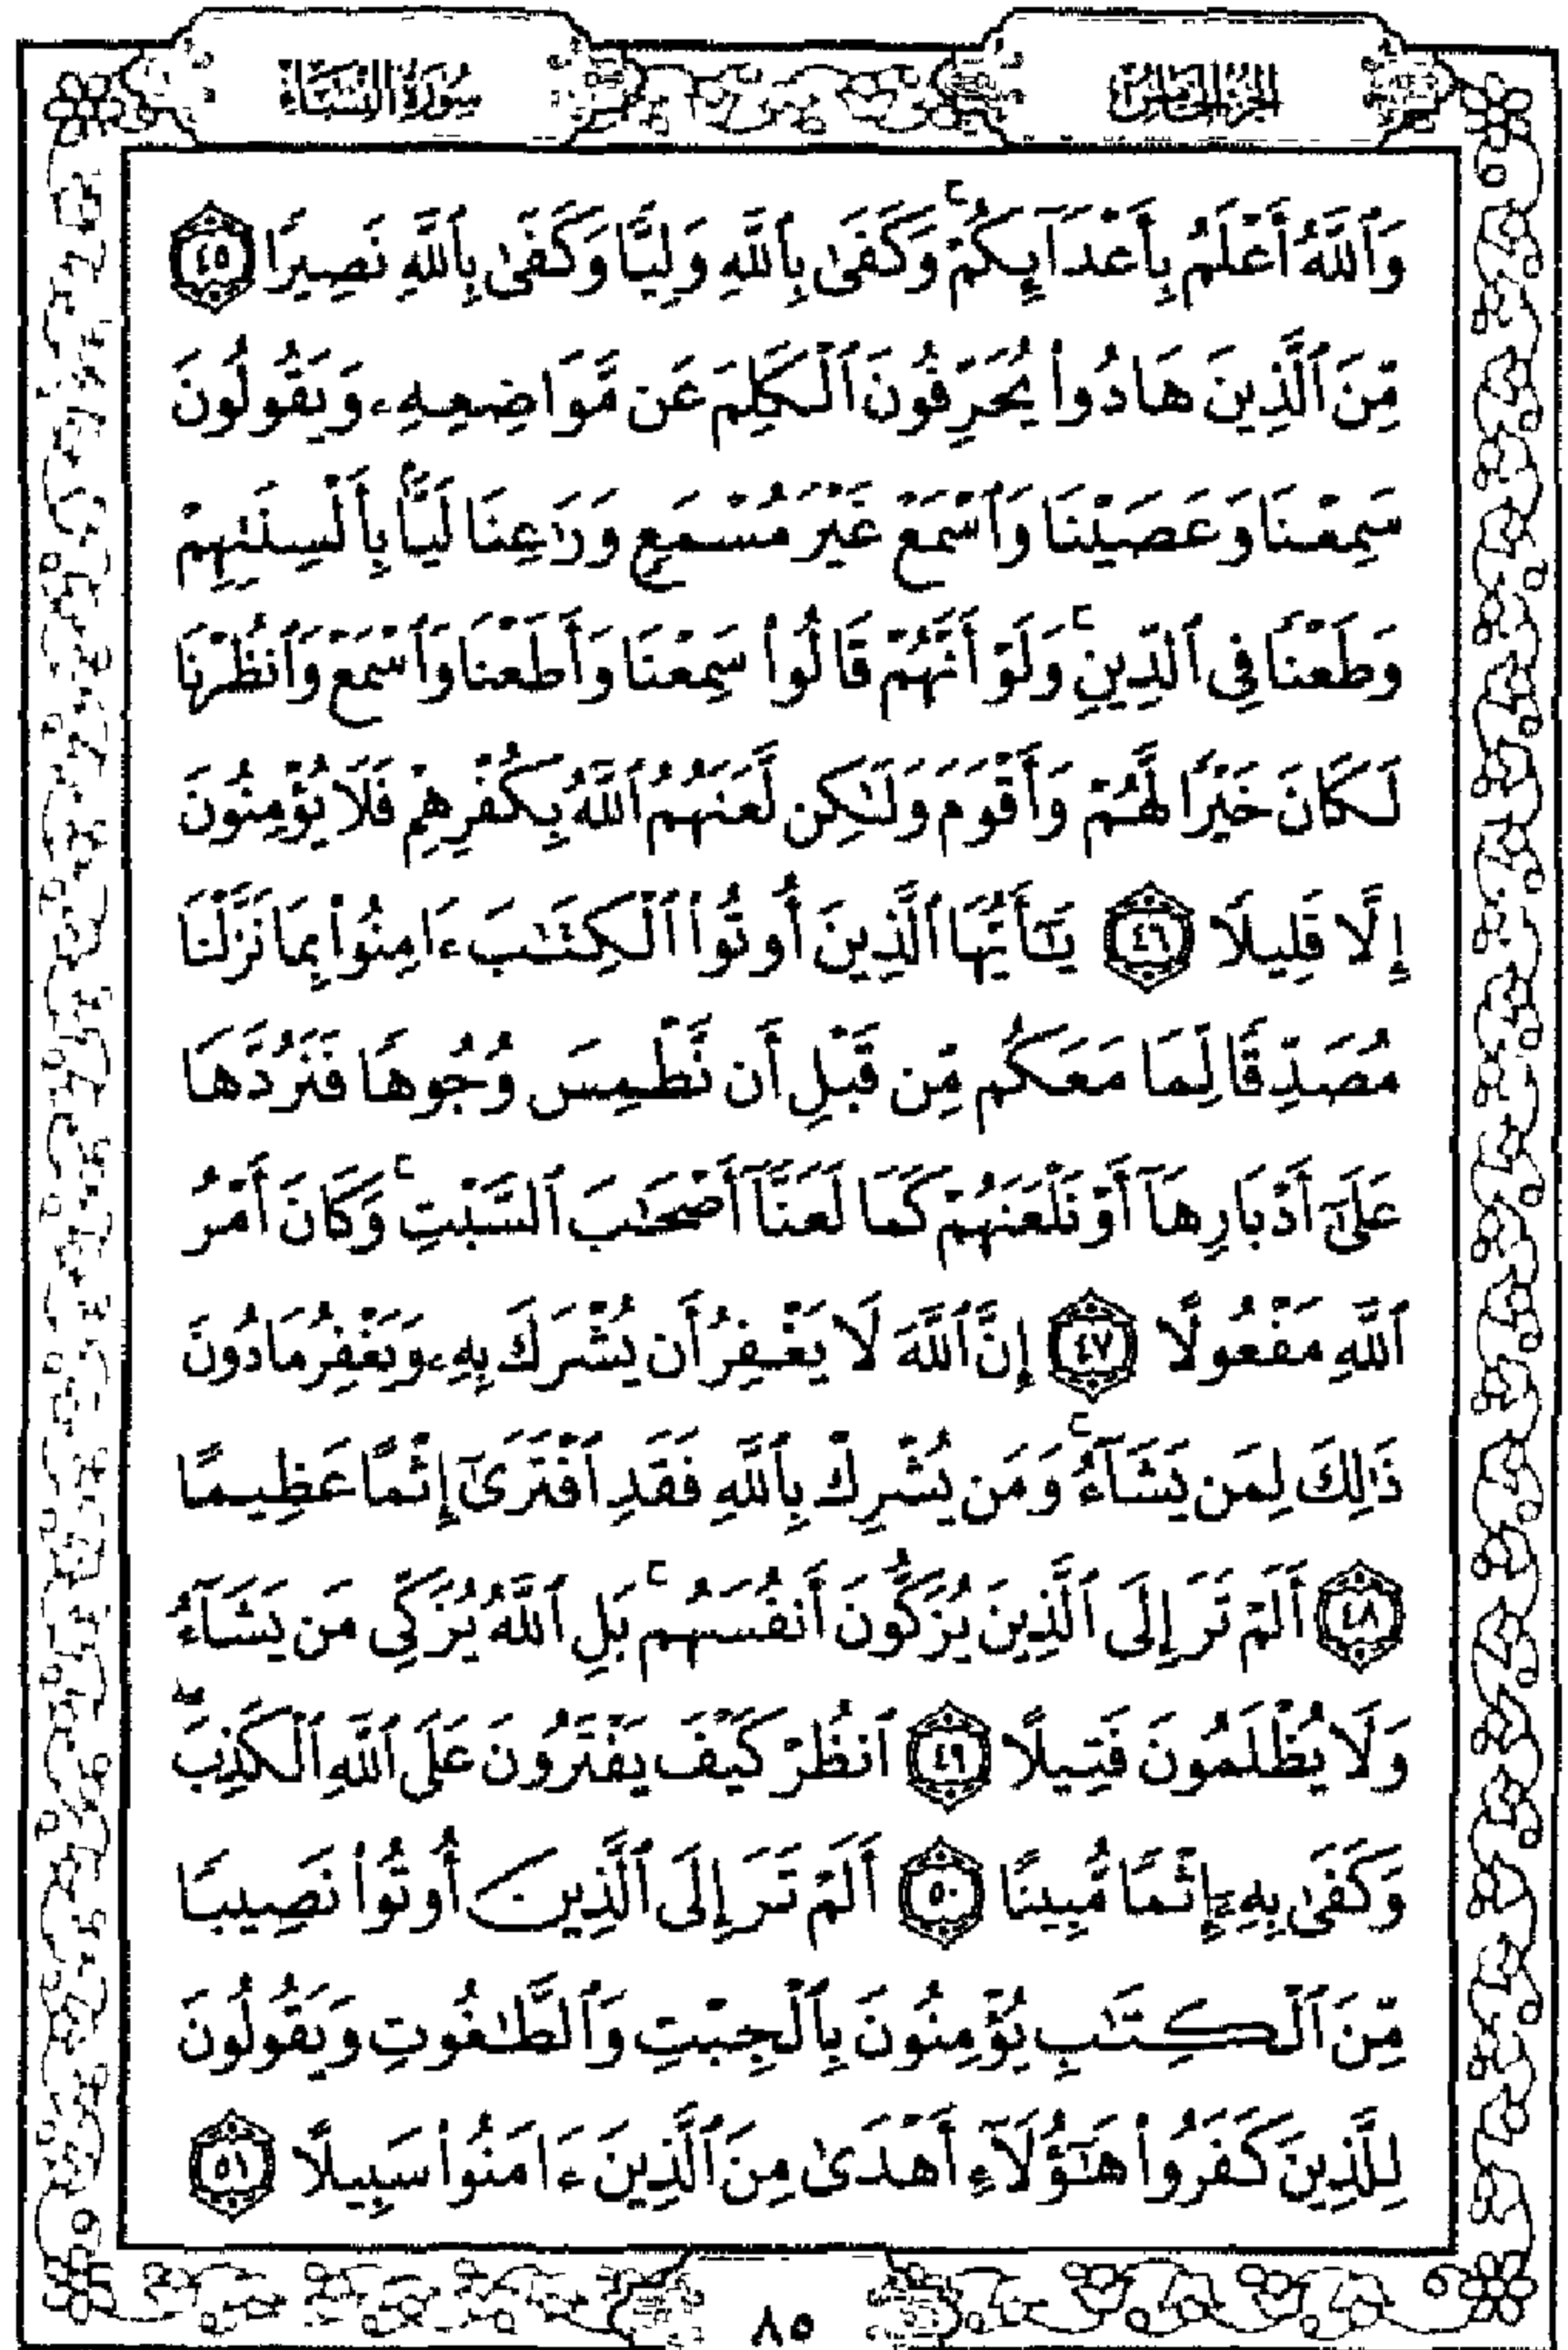 الجزء الخامس
سورة النساء
وَٱللَّهُ أَعۡلَمُ بِأَعۡدَآئِكُمۡۚ وَكَفَىٰ بِٱللَّهِ وَلِيّٗا وَكَفَىٰ بِٱللَّهِ نَصِيرٗا ٤٥
مِّنَ ٱلَّذِينَ هَادُواْ يُحَرِّفُونَ ٱلۡكَلِمَ عَن مَّوَاضِعِهِۦ وَيَقُولُونَ
سَمِعۡنَا وَعَصَيۡنَا وَٱسۡمَعۡ غَيۡرَ مُسۡمَعٖ وَرَٰعِنَا لَيَّۢا بِأَلۡسِنَتِهِمۡ
وَطَعۡنٗا فِي ٱلدِّينِۚ وَلَوۡ أَنَّهُمۡ قَالُواْ سَمِعۡنَا وَأَطَعۡنَا وَٱسۡمَعۡ وَٱنظُرۡنَا
لَكَانَ خَيۡرٗا لَّهُمۡ وَأَقۡوَمَ وَلَٰكِن لَّعَنَهُمُ ٱللَّهُ بِكُفۡرِهِمۡ فَلَا يُؤۡمِنُونَ
إِلَّا قَلِيلٗا ٤٦ يَٰٓأَيُّهَا ٱلَّذِينَ أُوتُواْ ٱلۡكِتَٰبَ ءَامِنُواْ بِمَا نَزَّلۡنَا
مُصَدِّقٗا لِّمَا مَعَكُم مِّن قَبۡلِ أَن نَّطۡمِسَ وُجُوهٗا فَنَرُدَّهَا
عَلَىٰٓ أَدۡبَارِهَآ أَوۡ نَلۡعَنَهُمۡ كَمَا لَعَنَّآ أَصۡحَٰبَ ٱلسَّبۡتِۚ وَكَانَ أَمۡرُ
ٱللَّهِ مَفۡعُولًا ٤٧ إِنَّ ٱللَّهَ لَا يَغۡفِرُ أَن يُشۡرَكَ بِهِۦ وَيَغۡفِرُ مَا دُونَ
ذَٰلِكَ لِمَن يَشَآءُۚ وَمَن يُشۡرِكۡ بِٱللَّهِ فَقَدِ ٱفۡتَرَىٰٓ إِثۡمًا عَظِيمًا
٤٨ أَلَمۡ تَرَ إِلَى ٱلَّذِينَ يُزَكُّونَ أَنفُسَهُمۚ بَلِ ٱللَّهُ يُزَكِّي مَن يَشَآءُ
وَلَا يُظۡلَمُونَ فَتِيلًا ٤٩ ٱنظُرۡ كَيۡفَ يَفۡتَرُونَ عَلَى ٱللَّهِ ٱلۡكَذِبَۖ
وَكَفَىٰ بِهِۦٓ إِثۡمٗا مُّبِينًا ٥٠ أَلَمۡ تَرَ إِلَى ٱلَّذِينَ أُوتُواْ نَصِيبٗا
مِّنَ ٱلۡكِتَٰبِ يُؤۡمِنُونَ بِٱلۡجِبۡتِ وَٱلطَّٰغُوتِ وَيَقُولُونَ
لِلَّذِينَ كَفَرُواْ هَٰٓؤُلَآءِ أَهۡدَىٰ مِنَ ٱلَّذِينَ ءَامَنُواْ سَبِيلًا ٥١
٨٥